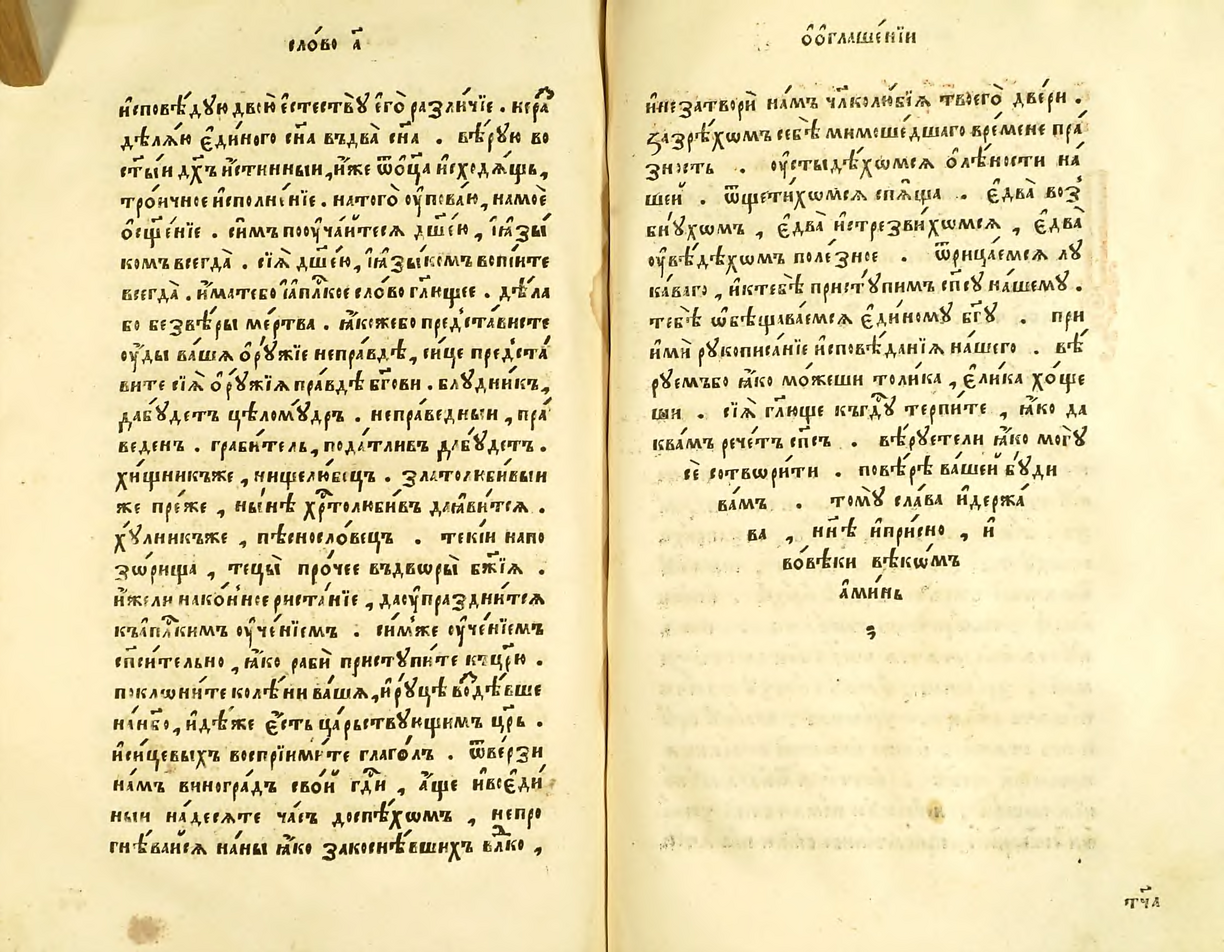 сло́во а҃
и҆сповѣ́дꙋю двою̀ є҆сте́ствꙋ є҆го̀ разли́чїе . нера
дѣлѧ́ю є҆ди́ного сн҃а въдва̀ сн҃а . вѣ́рꙋю во
ст҃ы́и дх҃ъ и҆́стинныи , и҆́же ѿо҆ц҃а и҆сходѧ́щь ,
тро́ичное и҆сполне́нїе . на того̀ ᲂу҆пова́ю , на моѐ
о҆сщ҃е́нїе . си́мъ поᲂу҆ча́итесѧ дш҃е́ю , і҆ꙗ҆зы́
комъ всегда̀ . сїѧ̀ дш҃е́ю , і҆ꙗ҆зы́комъ вопі́ите
всегда̀ . и҆́мате бо і҆а҆пⷭ҇лкое сло́во гл҃ющее . дѣ́ла
бо без вѣ́ры ме́ртва . ꙗ҆́коже бо предста́висте
ᲂу҆́ды ва́шѧ ѻ҆рꙋ́жїе непра́вдѣ , си́це предста́
вите сїѧ̀ ѻ҆рꙋ́жїѧ пра́вдѣ бг҃ови . блꙋдни́къ ,
да бꙋ́детъ цѣломꙋ́дръ . непра́ведныи , пра́
веденъ . граби́тель , пода́тливъ да бꙋ́детъ .
хи́щникъ же , нищелю́бецъ . златолюби́выи
же пре́же , ны́нѣ хрⷭ҇толюби́въ даꙗ҆ви́тсѧ .
хꙋ́лникъ же , пѣсносло́вецъ . теки́и на по
зѡ́рища , тецы̀ про́чее въдвѡры̀ бж҃їѧ .
и҆́жели на ко́нное риста́нїе , да ᲂу҆пра́зднитсѧ
къ а҆пⷭ҇лкимъ ᲂу҆че́нїемъ . си́мже ᲂу҆че́нїемъ
спⷭ҇и́тельно , ꙗ҆́ко рабѝ пристꙋпи́те къ цр҃ю̀ .
поклѡни́те колѣ́ни ва́шѧ , и҆ рꙋ́цѣ воⷥдѣ́вше
на нб҃о , и҆дѣ́же є҆́сть ца́рьствꙋющимъ цр҃ь .
и҆ си́цевыхъ воспрїими́те глаго́лъ . ѿве́рзи
на́мъ виногра́дъ сво́й гдⷭ҇и , а҆́ще и҆ въ є҆ди́
ныи на́десѧте ча́съ доспѣ́хѡмъ , непро
гнѣ́ваисѧ на́ны ꙗ҆́ко закоснѣ́вшихъ влⷣко ,
ѻ҆ ѻ҆глаше́нїи
и҆ не затворѝ на́мъ чл҃колю́бїѧ твоего̀ две́ри .
зазрѣ́хѡмъ себѣ̀ мимоше́дшаго вре́мене пра́
зность . ᲂу҆стыдѣ́хѡмсѧ ѻ҆ лѣ́ности на́
шей . ѿщети́хѡмсѧ спѧ́ща . є҆два̀ воз̾
бнꙋ́хѡмъ , є҆два̀ и҆стрезви́хѡмсѧ , є҆два̀
ᲂу҆вѣ́дѣхѡмъ поле́зное . ѿрица́емсѧ лꙋ
ка́ваго , и҆ к тебѣ̀ пристꙋ́пимъ спⷭ҇ꙋ на́шемꙋ .
тебѣ̀ ѡ҆бѣщава́емсѧ є҆ди́номꙋ бг҃ꙋ . при
и҆мѝ рꙋкописа́нїе и҆сповѣ́данїѧ на́шего . вѣ́
рꙋемъ бо ꙗ҆́ко мо́жеши толи́ка , є҆ли́ка хо́ще
ши . сїѧ̀ гл҃юще къ гдⷭ҇ꙋ терпи́те , ꙗ҆́ко да
к ва́мъ рече́тъ спⷭ҇ъ . вѣ́рꙋете ли ꙗ҆́ко могꙋ̀
сѐ сотвѡри́ти . по вѣ́рѣ ва́шей бꙋ́ди
ва́мъ . томꙋ̀ сла́ва и҆ держа́
ва , нн҃ѣ и҆ при́сно , и҆
во вѣ́ки вѣкѡ́мъ
а҆ми́нь
тч҃а